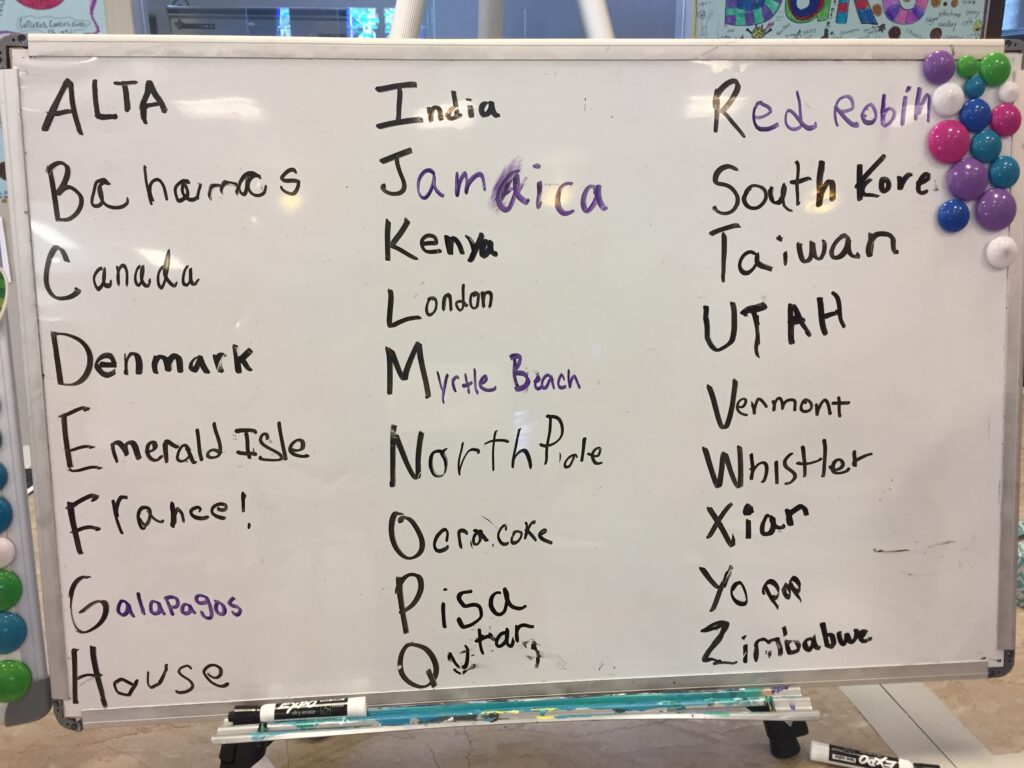 ALTA
Bahamas
Canada
Denmark
Emerald Isle
France!
Galapagos
House
India
Jamaica
Kenya
London
Myrtle Beach
North Pole
Ocracoke
Pisa
Qutar
Red Robin
South Kore
Taiwan
UTAH
Vermont
Whistler
Xian
Yo pop
Zimbabwe
EXPO
EXPO